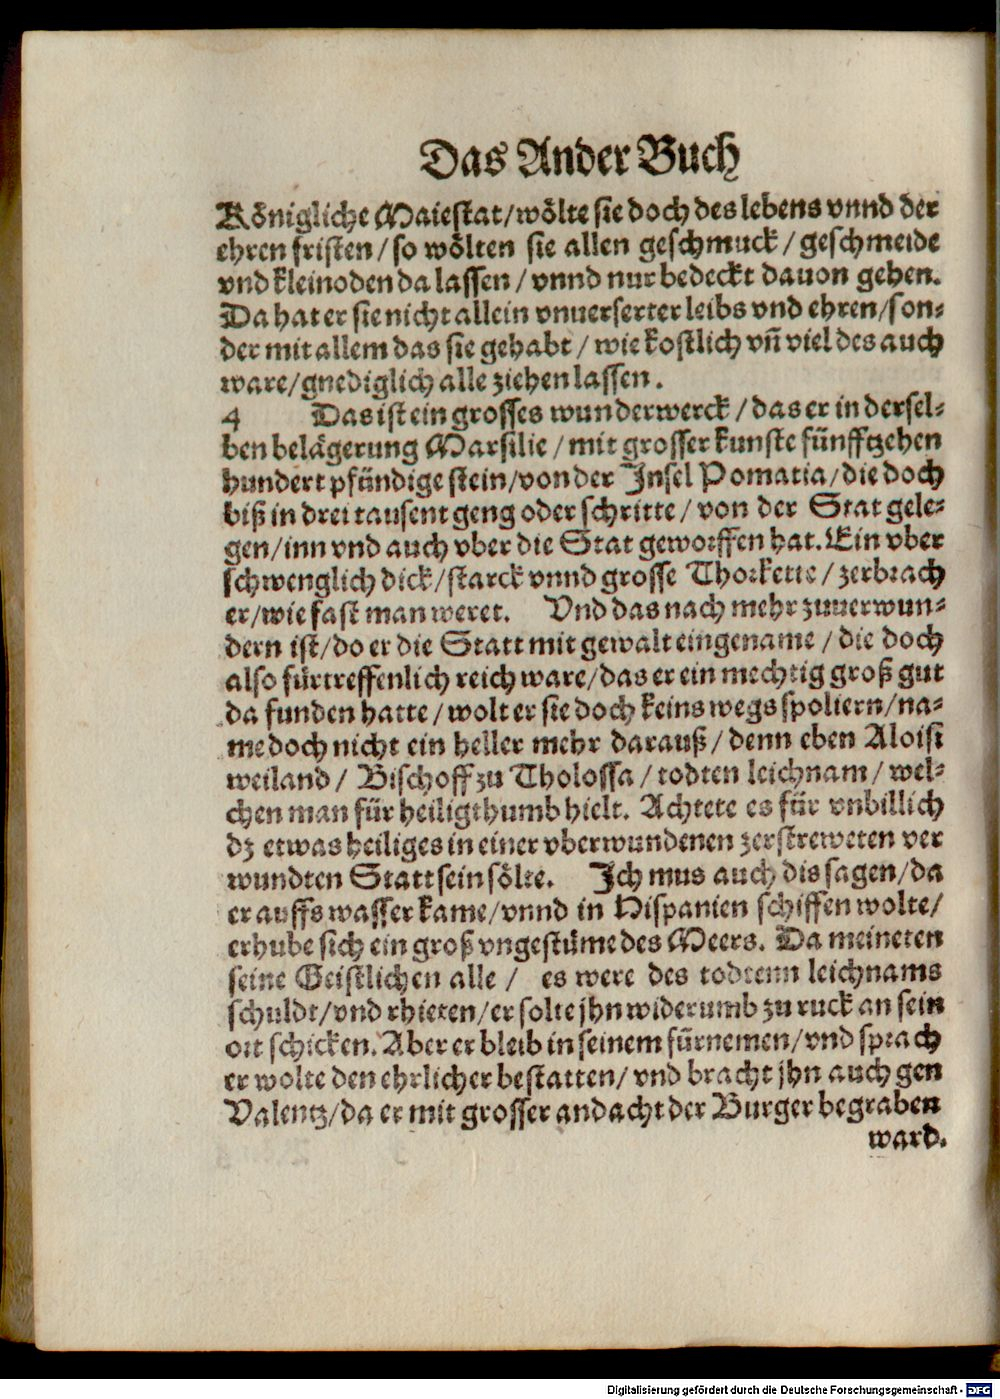 Das Ander Buch
Königliche Maiestat/wölte sie doch des lebens vnnd der
ehren fristen/so wölten sie allen geschmuck/geschmeide
vnd kleinoden da lassen/vnnd nur bedeckt dauon gehen.
Da hat er sie nicht allein vnuerserter leibs vnd ehren/son-
der mit allem das sie gehabt/wie kostlich vñ viel des auch
ware/gnediglich alle ziehen lassen.
4 Das ist ein grosses wunderwerck/das er in dersel-
ben belägerung Marsilie/mit grosser kunste fünfftzehen
hundert pfündige stein/von der Insel Pomatia/die doch
biß in drei tausent geng oder schritte/von der Stat gele-
gen/inn vnd auch vber die Stat geworffen hat. Ein vber
schwenglich dick/starck vnnd grosse Thorkette/zerbrach
er/wie fast man weret. Vnd das nach mehr zuuerwun-
dern ist/do er die Statt mit gewalt eingename/die doch
also fürtreffenlich reich ware/das er ein mechtig groß gut
da funden hatte/wolt er sie doch keins wegs spoliern/na-
me doch nicht ein heller mehr darauß/denn eben Aloisi
weiland/Bischoff zu Tholossa/todten leichnam/wel-
chen man für heiligthumb hielt. Achtete es für vnbillich
dz etwas heiliges in einer vberwundenen zerstreweten ver
wundten Statt sein sölte. Ich mus auch dis sagen/da
er auffs wasser kame/vnnd in Hispanien schiffen wolte/
erhube sich ein groß vngestüme des Meers. Da meineten
seine Geistlichen alle/ es were des todtenn leichnams
schuldt/vnd rhieten/er solte jhn widerumb zu ruck an sein
ort schicken. Aber er bleib in seinem fürnemen/vnd sprach
er wolte den ehrlicher bestatten/vnd bracht jhn auch gen
Valentz/da er mit grosser andacht der Burger begraben
ward.
Digitalisierung gefördert durch die Deutsche Forschungsgemeinschaft - DFG